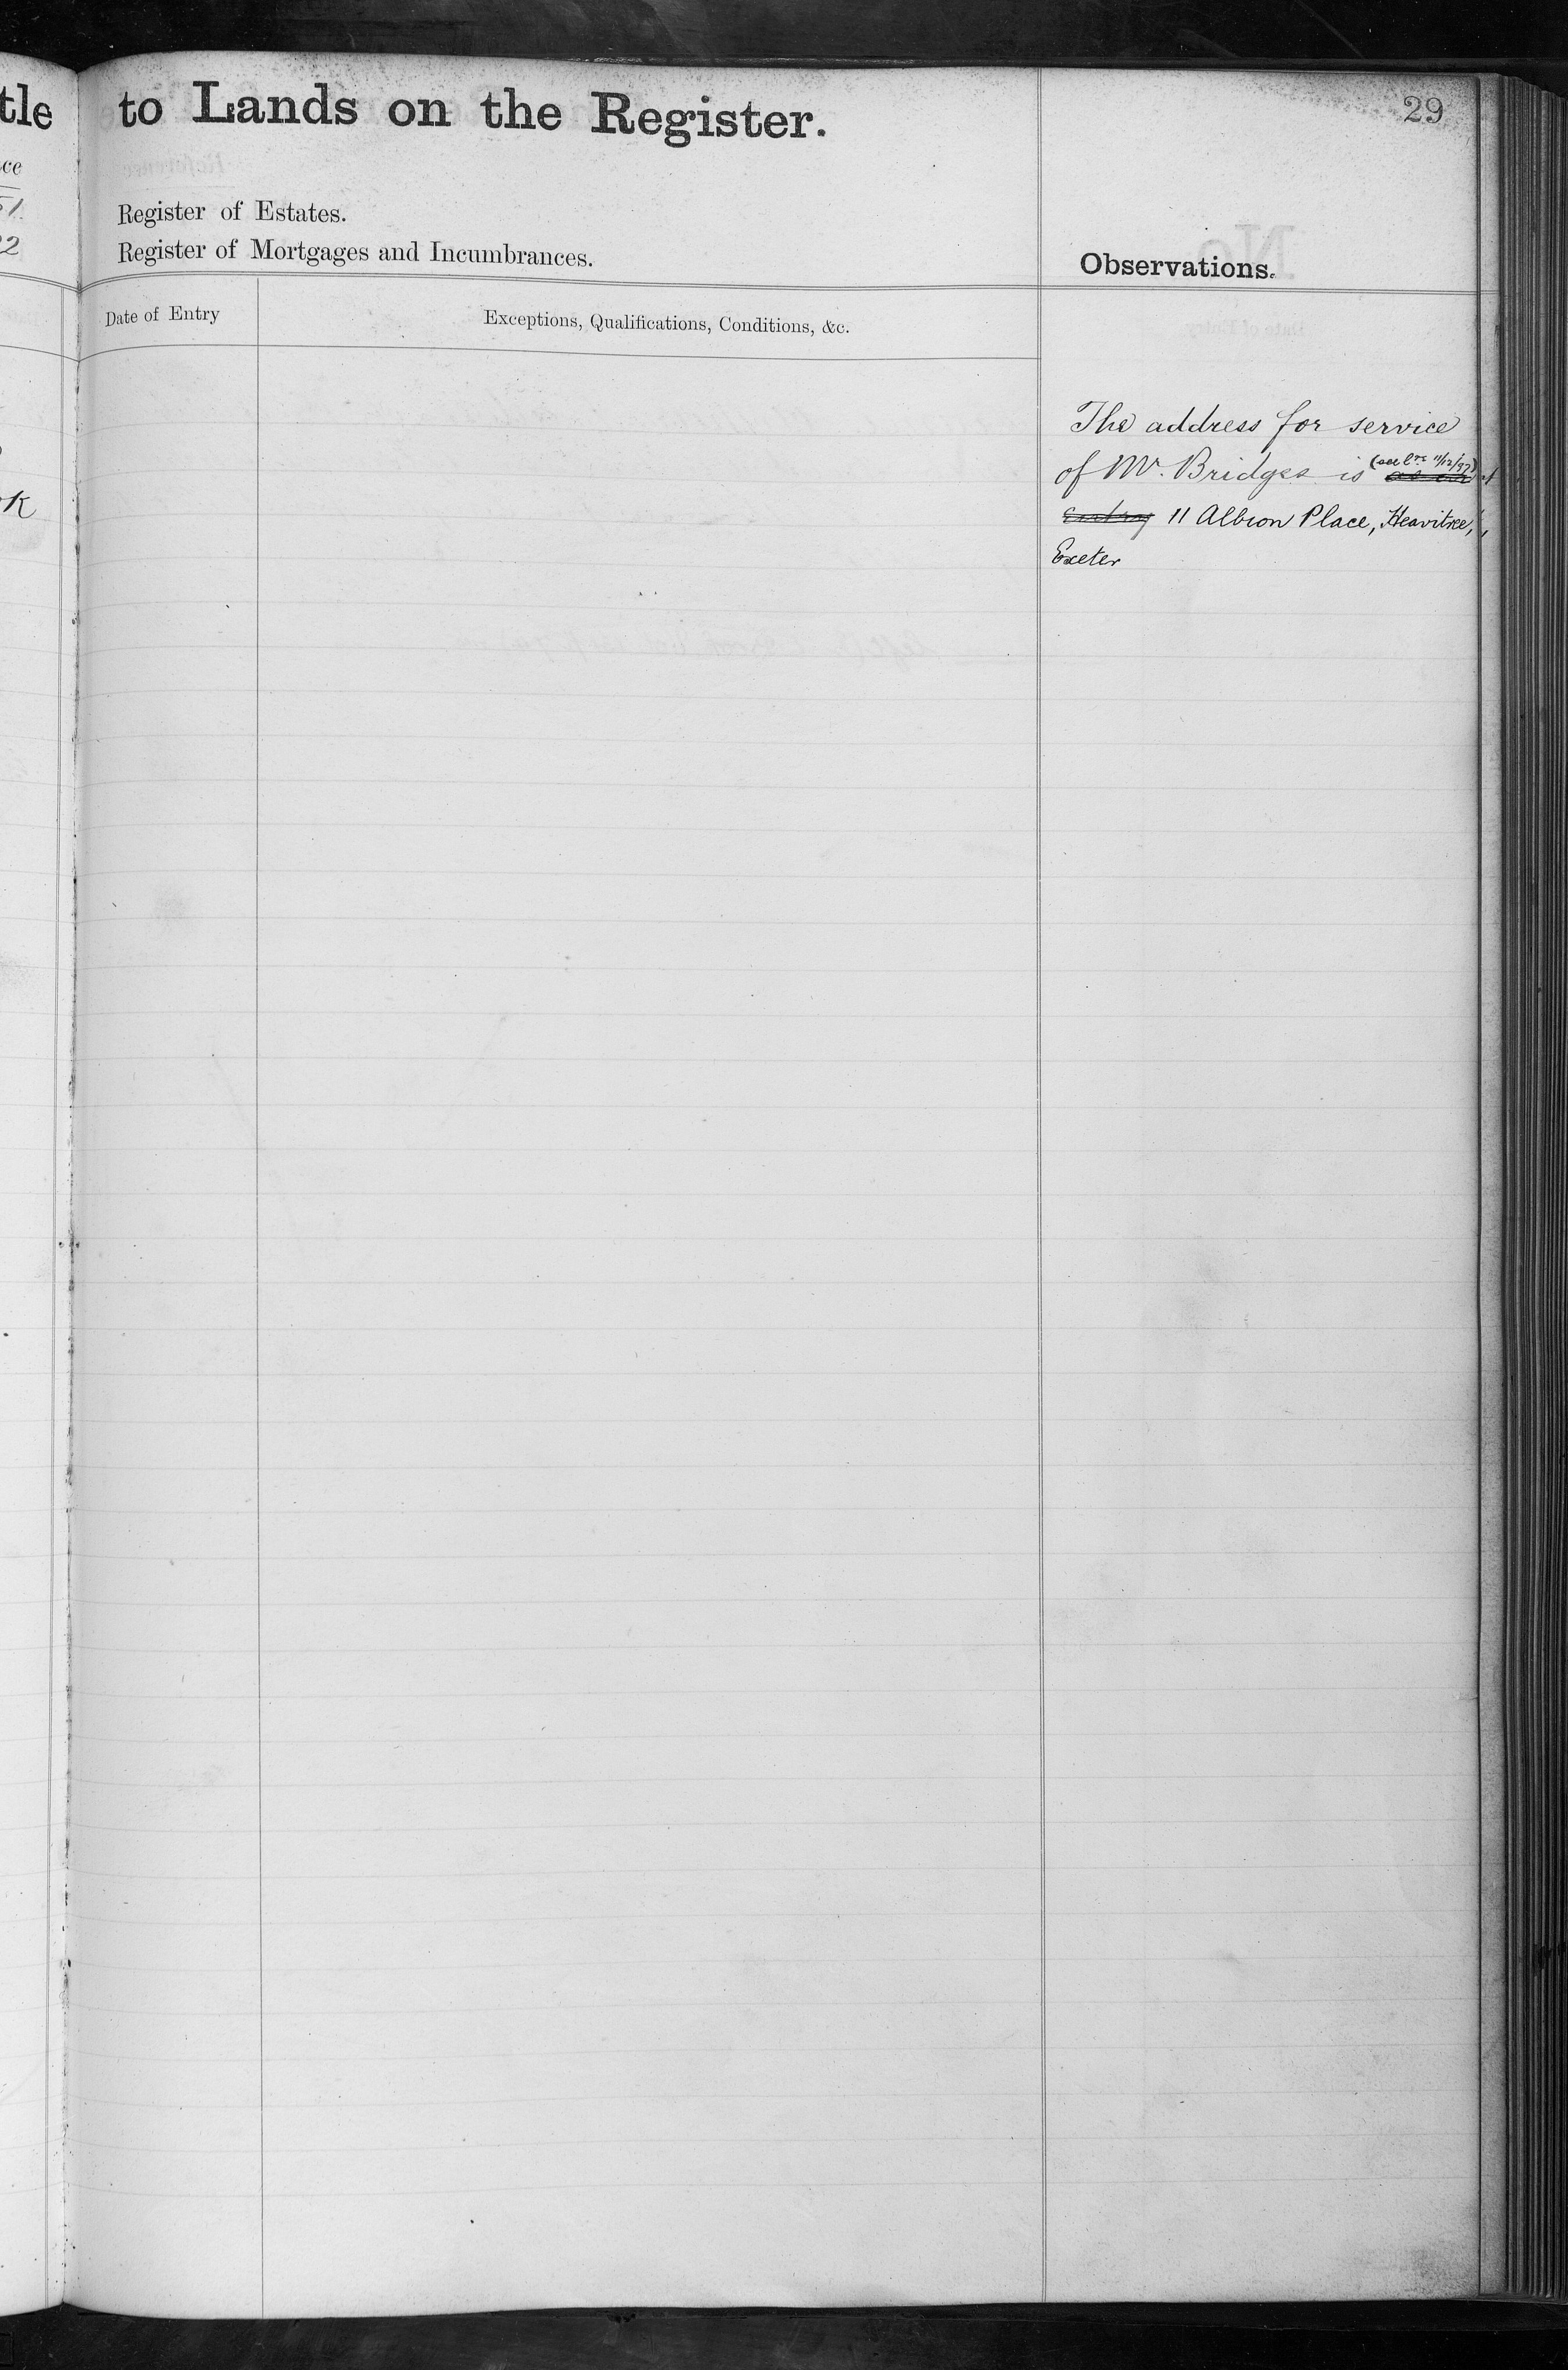 tle to Lands on the Register.
29
ce
Register of Estates.
Register of Mortgages and Incumbrances.
Observations.
Date of Entry
Exceptions, Qualifications, Conditions, &c.
The address for service
of Mr. Bridges is (see lre 11/12/97) as in
Entry 11 Albion Place, Heavitree,
Exeter